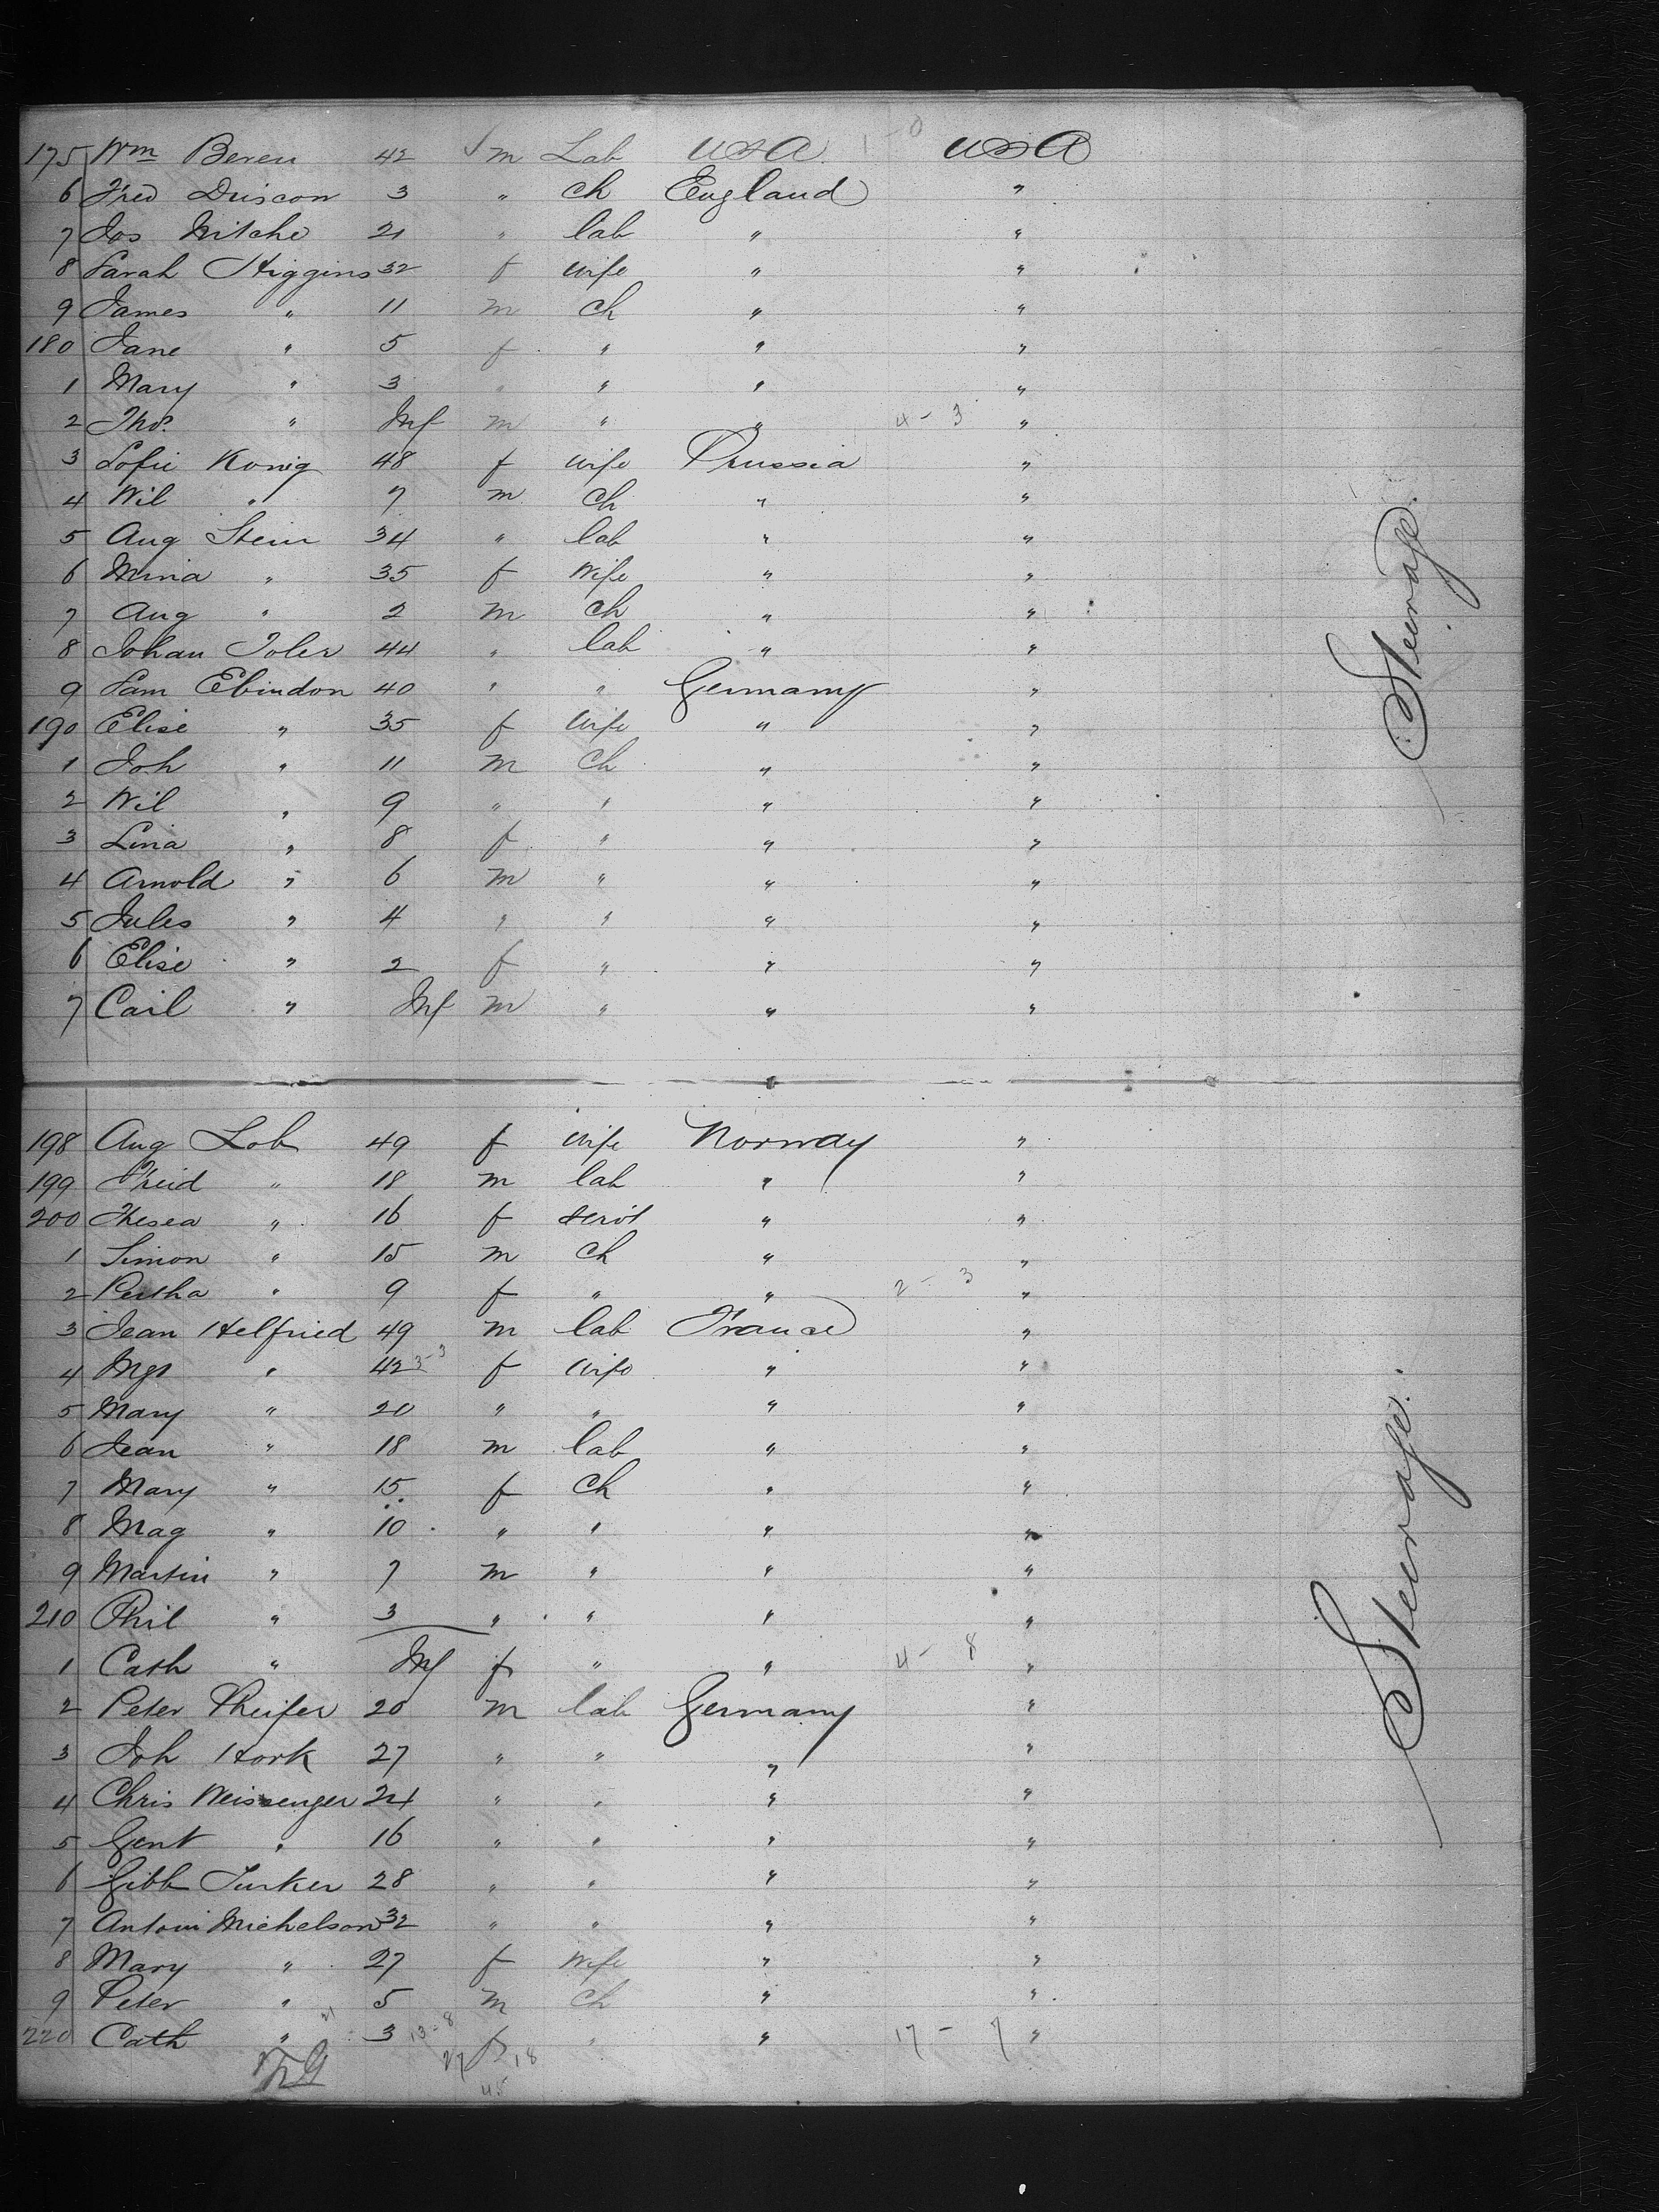 175 Wm Beren 42 m Lab USA 1-0 USA
6 Fred Driscon 3 " ch England "
7 Jos Mitche 21 " lab " "
8 Sarah Higgins 32 f wife " "
9 James " 11 m ch " "
180 Jane " 5 f " " "
1 Mary " 3 " " " "
2 Thos. " Inf m " " 4-3 "
3 Sofie Konig 48 f wife Prussia "
4 Wil " 7 m ch " "
5 Aug Stein 34 " lab " "
6 Mina " 35 f Wife " "
7 Aug " 2 m ch " "
8 Johan Toler 44 " lab " "
9 Sam Ebindon 40 " " Germany "
190 Elise " 35 f wife " "
1 Joh " 11 m ch " "
2 Wil " 9 " " " "
3 Lina " 8 f " " "
4 Arnold " 6 m " " "
5 Jules " 4 " " " "
6 Elise " 2 f " " "
7 Carl " Inf m " " "
198 Aug Lob 49 f wife Norway "
199 Freid " 18 m lab " "
200 Thesea " 16 f servt " "
1 Simon " 15 m ch " "
2 Pertha " 9 f " " 2-3 "
3 Jean Helfried 49 m lab France "
4 Mgt " 42 3-3 f wife " "
5 Mary " 20 " " " "
6 Jean " 18 m lab " "
7 Mary " 15 f ch " "
8 Mag " 10 " " " "
9 Martin " 7 m " " "
210 Phil " 3 " " " "
1 Cath " Inf f " " 4-8 "
2 Peter Pheifer 20 m lab Germany "
3 Joh Hork 27 " " " "
4 Chris Weissenger 24 " " " "
5 Gent " 16 " " " "
6 Gibb Tunker 28 " " " "
7 Antoin Michelson 32 " " " "
8 Mary " 27 f wife " "
9 Peter " 5 m ch " "
220 Cath " 3 13-8 f " " 17-7 "
21
27 18
45
Steerage.
Steerage.